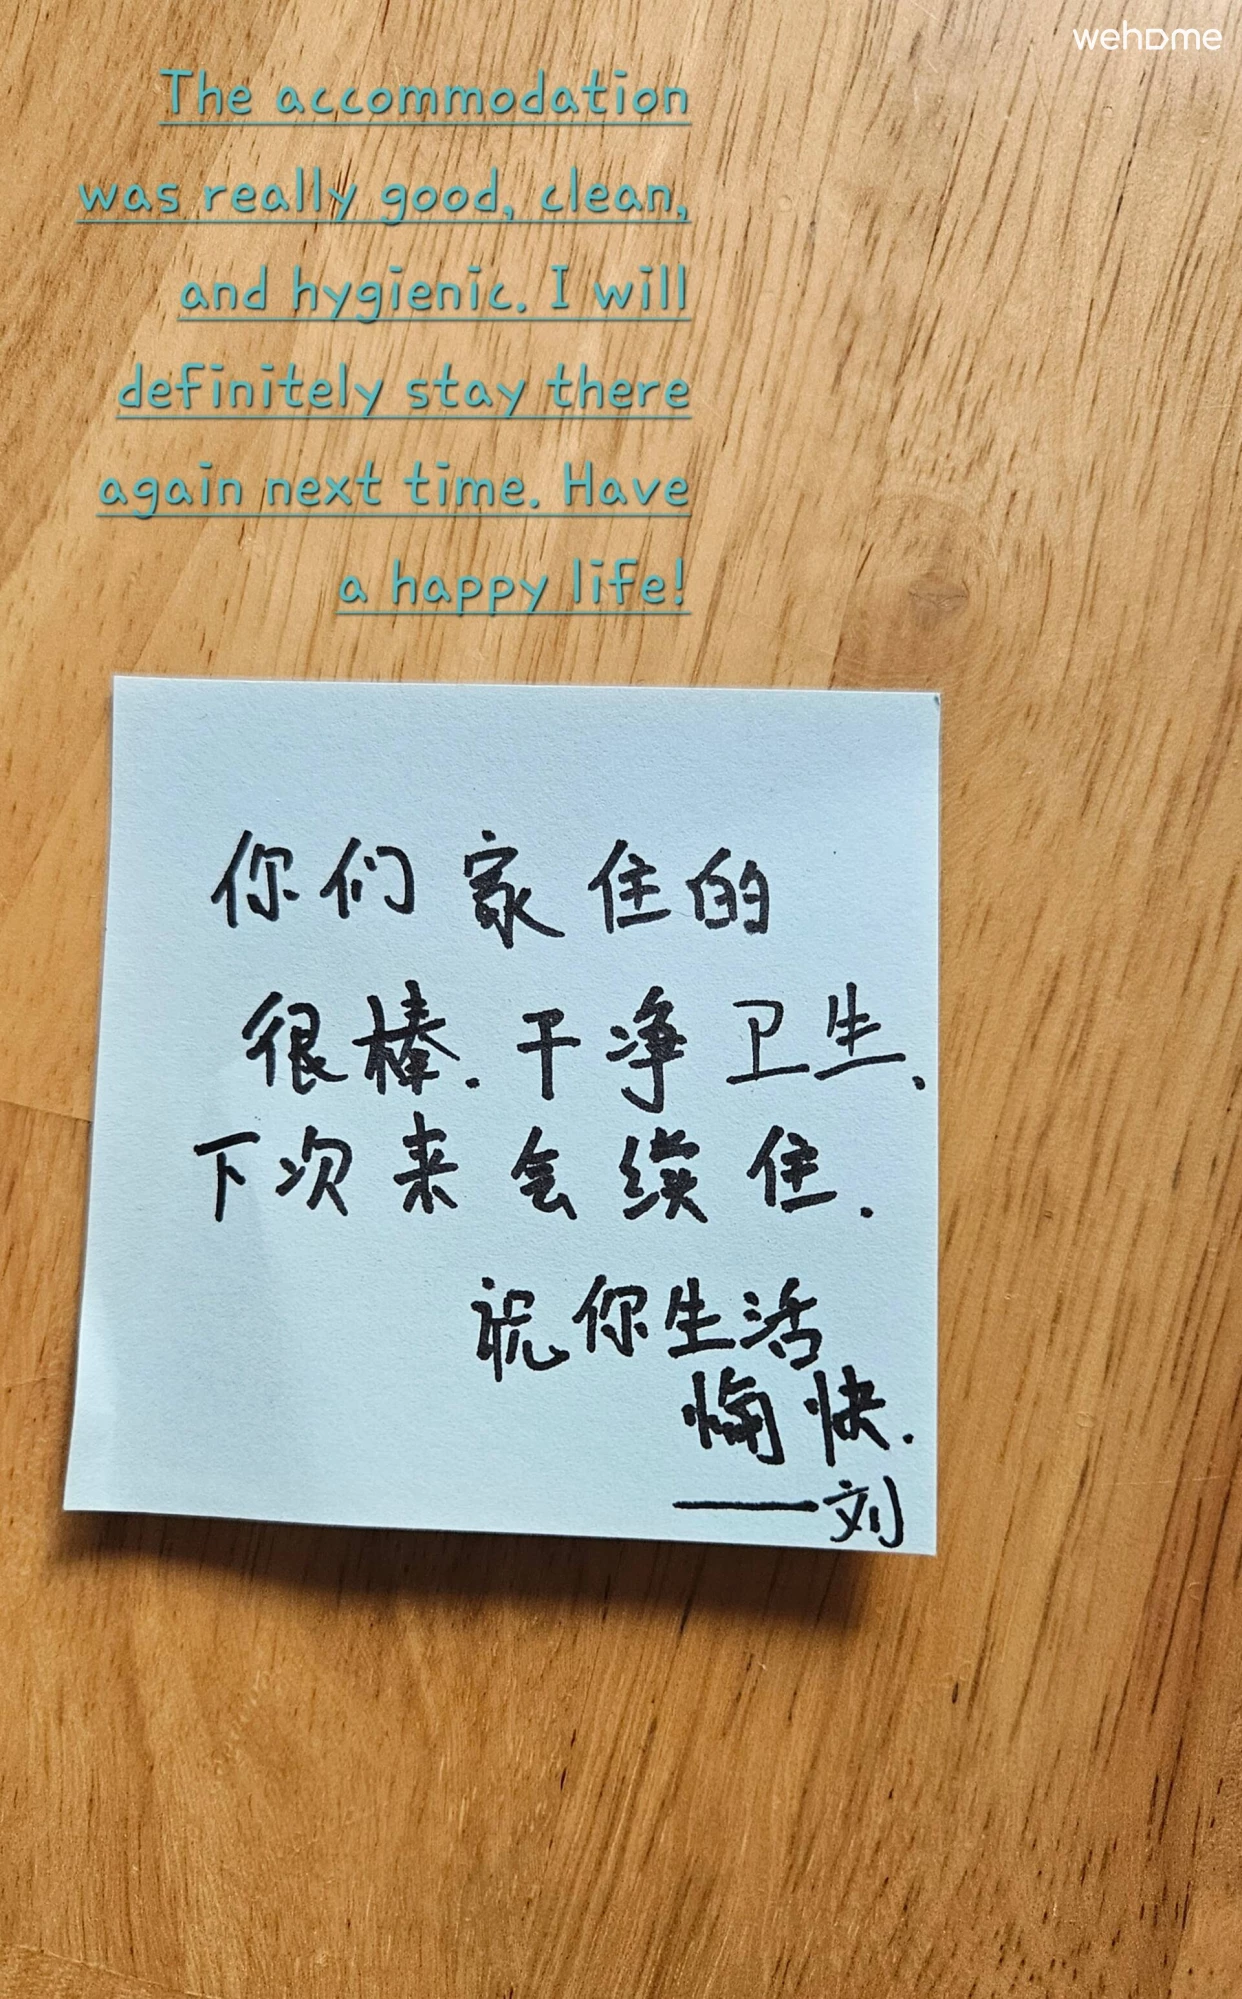 wehome
The accommodation
was really good, clean,
and hygienic. I will
definitely stay there
again next time. Have
a happy life!
你们家住的
很棒.干净卫生、
下次来会续住.
祝你生活
愉快.
——刘